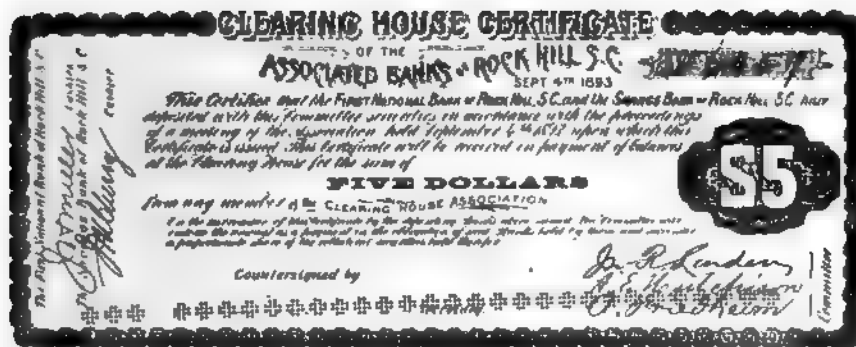 CLEARING HOUSE CERTIFICATE
OF THE
ASSOCIATED BANKS OF ROCK HILL S.C.
SEPT 4TH 1893
This Certifies that the FIRST NATIONAL BANK OF ROCK HILL, S.C. and the SAVINGS BANK OF ROCK HILL S.C. have
deposited with this Committee securities in accordance with the proceedings
of a meeting of the Association held September 4th 1893 upon which this
Certificate is issued. This Certificate will be received in payment of balances
at the Clearing House for the sum of
$5
FIVE DOLLARS
from any member of the CLEARING HOUSE ASSOCIATION
On the surrender of this Certificate by the depositing Banks above named the Committee will
Countersigned by
Committee
The First National Bank of Rock Hill S.C.
Cashier
The Savings Bank of Rock Hill S.C.
Cashier